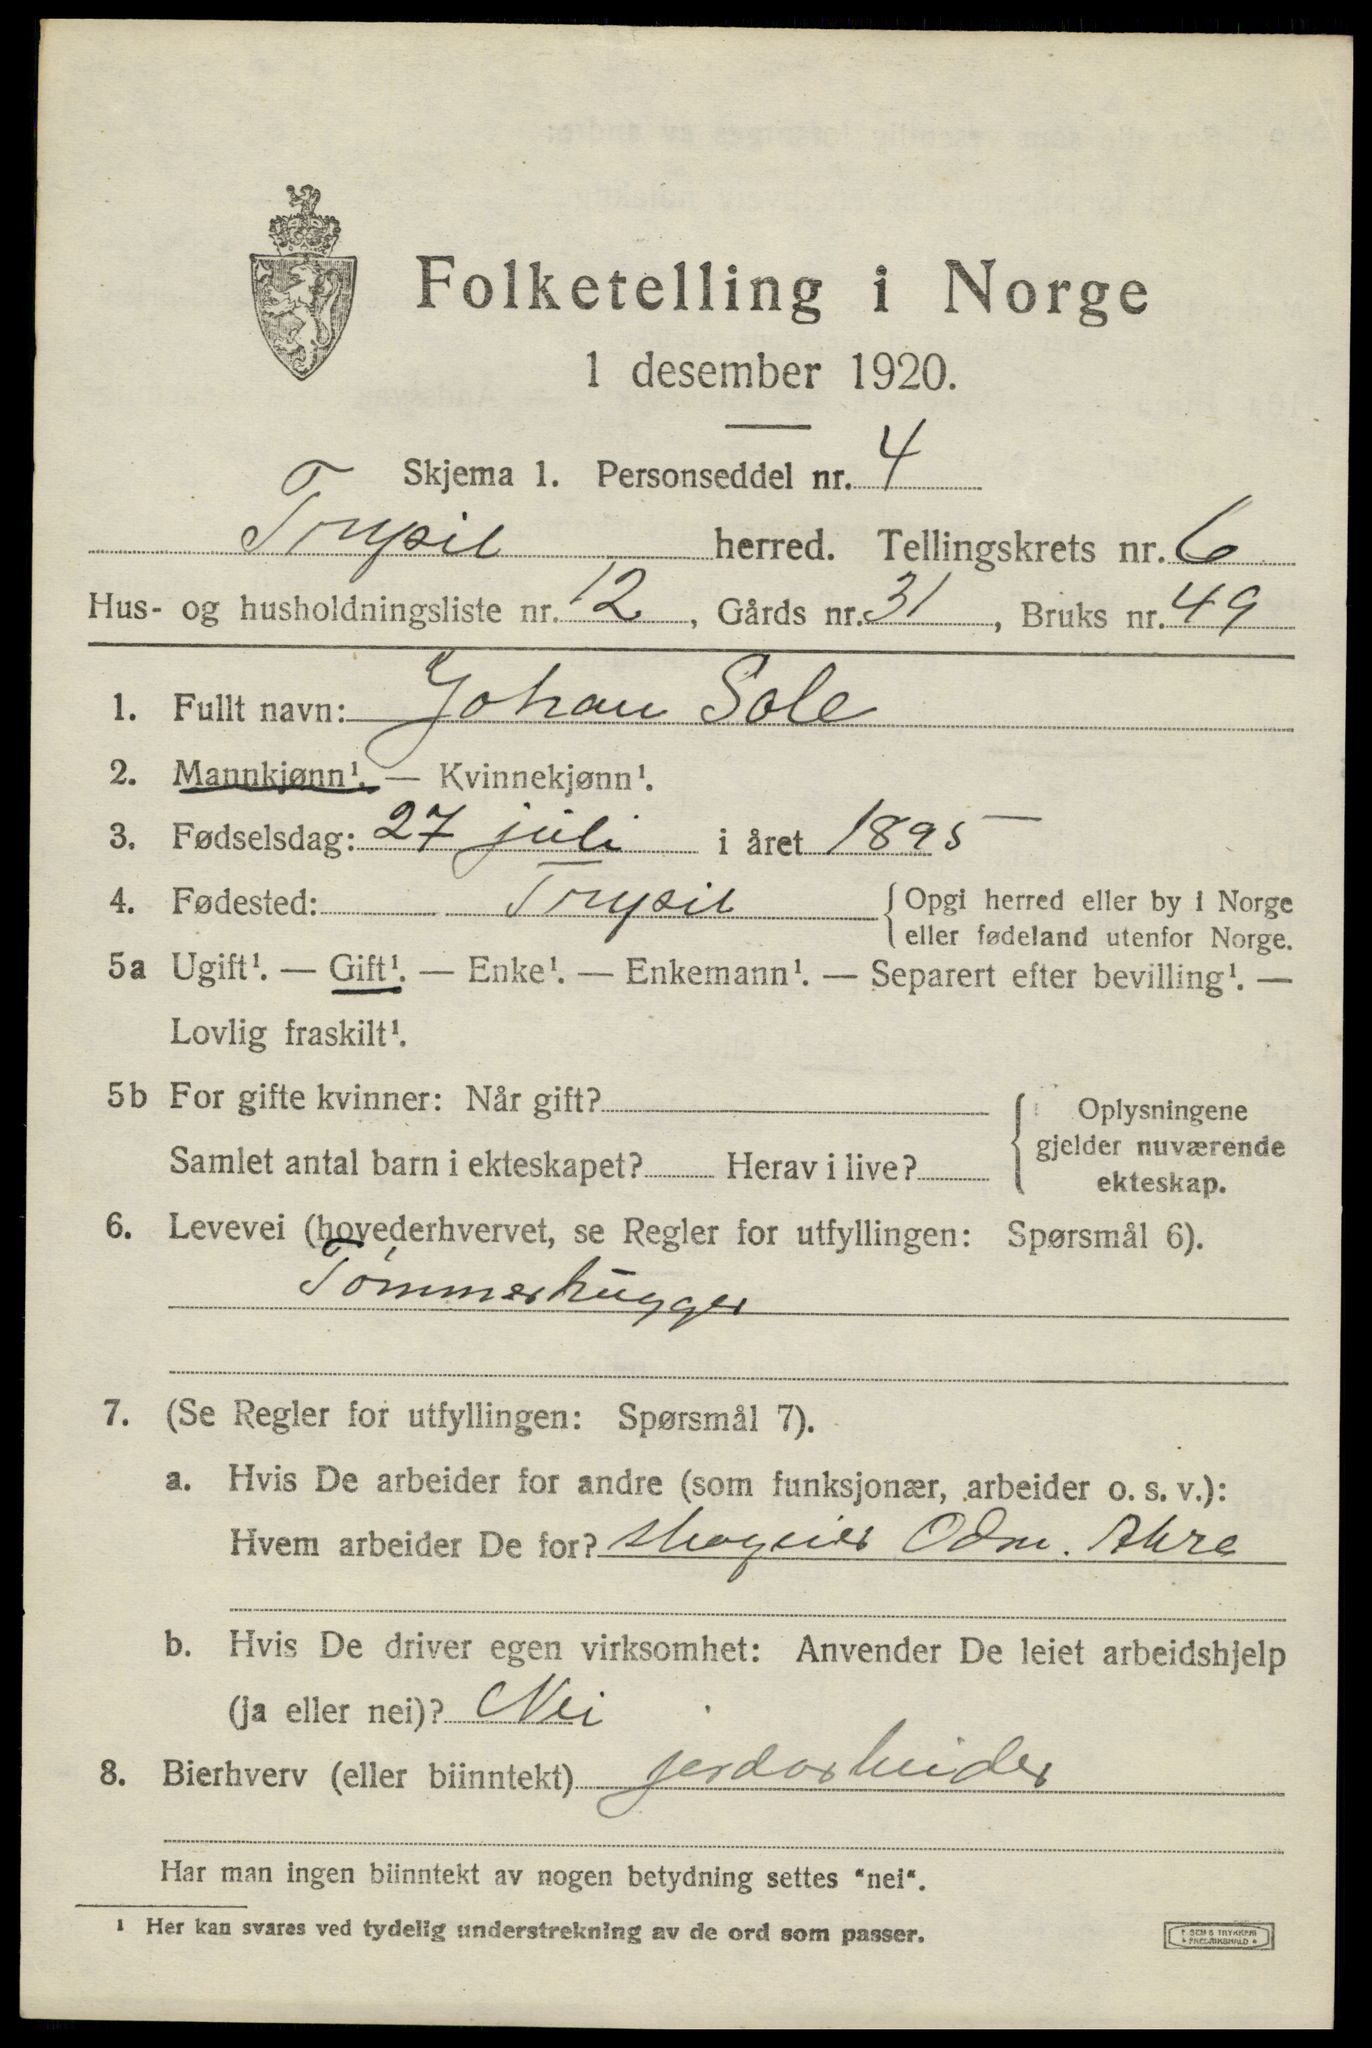 Folketelling i Norge
1 desember 1920.
Skjema 1. Personseddel nr. 4
Trysil herred. Tellingskrets nr. 6
Hus- og husholdningsliste nr. 12, Gårds nr. 31, Bruks nr. 49
1. Fullt navn: Johan Sole
2. Mannkjønn¹. — Kvinnekjønn¹.
3. Fødselsdag: 27 juli i året 1895
4. Fødested: Trysil {Opgi herred eller by i Norge
eller fødeland utenfor Norge.
5a Ugift¹. — Gift¹. — Enke¹. — Enkemann¹. — Separert efter bevilling¹. —
Lovlig fraskilt¹.
5b For gifte kvinner: Når gift?
Samlet antal barn i ekteskapet? Herav i live?
Oplysningene
gjelder nuværende
ekteskap.
6. Levevei (hovederhvervet, se Regler for utfyllingen: Spørsmål 6).
Tømmerhugger
7. (Se Regler for utfyllingen: Spørsmål 7).
a. Hvis De arbeider for andre (som funksjonær, arbeider o. s. v.):
Hvem arbeider De for? skogeier Odm. Akre
b. Hvis De driver egen virksomhet: Anvender De leiet arbeidshjelp
(ja eller nei)? Nei
8. Bierhverv (eller biinntekt) jordarbeider
Har man ingen biinntekt av nogen betydning settes "nei".
¹ Her kan svares ved tydelig understrekning av de ord som passer.
FREDRIKSHALD